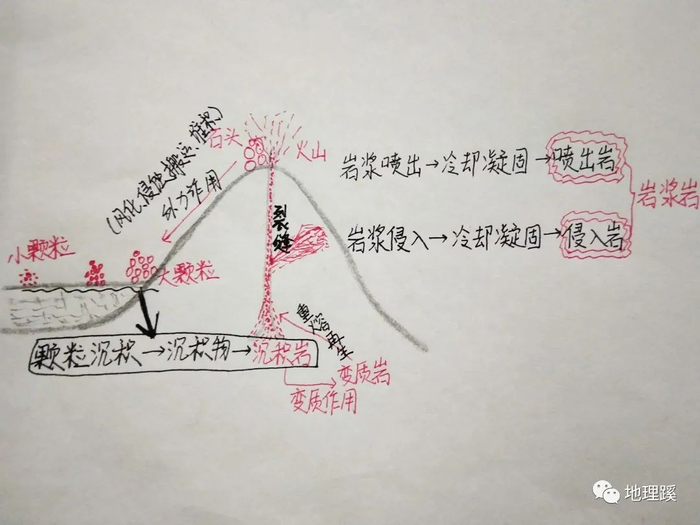 (风化、侵蚀、搬运、堆积)
外力作用
石头
火山
岩浆喷出→冷却凝固→喷出岩
岩浆岩
裂缝
岩浆侵入→冷却凝固→侵入岩
小颗粒
大颗粒
重熔再生
颗粒沉积→沉积物→沉积岩
变质岩
变质作用
地理蹊